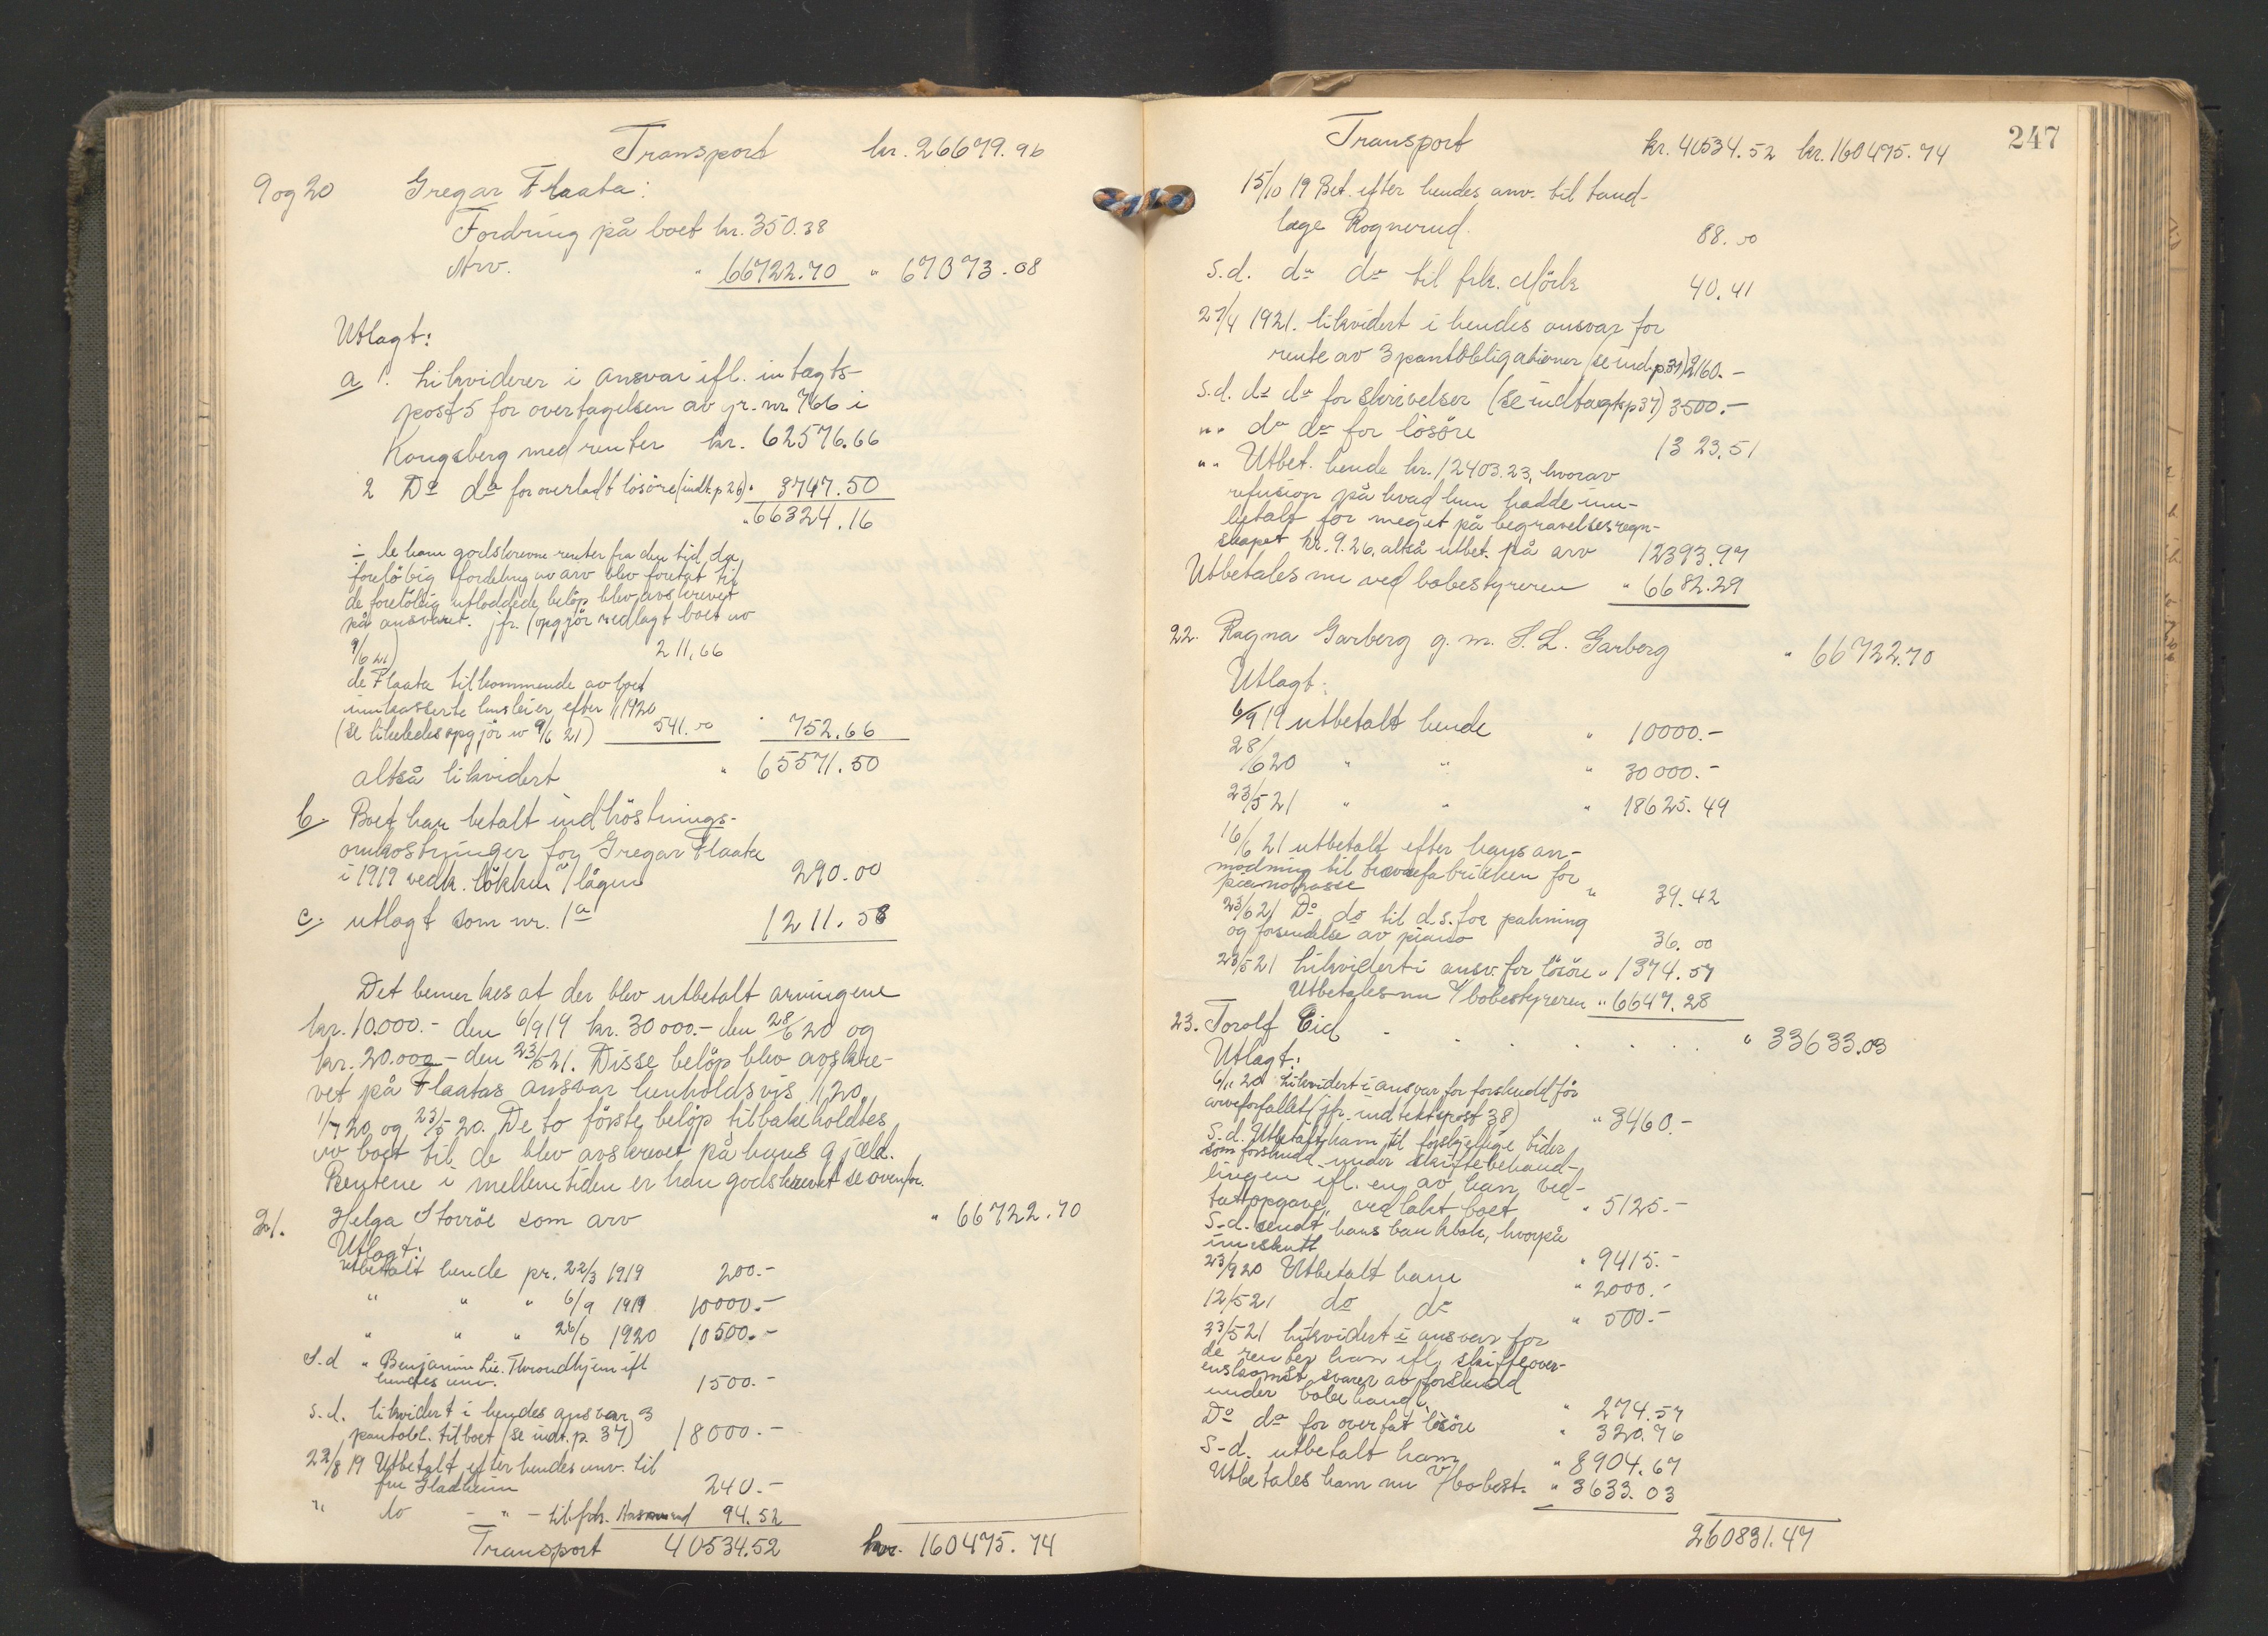 Transport kr. 26679.96
9 og 20 Gregar Flaata:
Fordring på boet kr. 350.38
Arv. " 66722.70 " 67073.08
Utlagt:
a 1. Likviderer i ansvar ifl. intægts-
post 5 for overtagelsen av gr. nr. 766 i
Kongsberg med renter kr. 62576.66
2 Do do for overladt lösöre (indt. p 26) " 3747.50
" 66324.16
÷ de ham godskrevne renter fra den tid da
forelöbig fordeling av arv blev foretat til
de forelöbig utloddede belöp blev avskrevet
på ansvaret. jfr. (opgjör vedlagt boet av
9/6 21) 211.66
de Flaata tilkommende av boet
innkasserte husleier efter 1/1 1920
(se likeledes opgjör av 9/6 21) 541.00 " 752.66
altså likvidert " 65571.50
b. Boet har betalt indhöstnings-
omkostninger for Gregar Flaata
i 1919 vedk. lökken v/lågen 290.00
c. utlagt som nr. 1a 1211.58
Det bemerkes at der blev utbetalt arvingene
kr. 10.000.- den 6/9 19 kr. 30000.- den 28/6 20 og
kr. 20.000 - den 23/5 21. Disse belöp blev avskre-
vet på Flaatas ansvar henholdsvis 1/1 20,
1/7 20, og 23/5 20. De to förste belöp tilbakeholdtes
av boet til de blev avskrevet på hans gjæld.
Rentene i mellemtiden er han godskrevet se ovenfor.
21. Helga Storröe som arv " 66722.70
Utlagt:
utbetalt hende pr. 22/3 1919 200.-
" " " 6/9 1919 10000.-
" " " 26/6 1920 10500.-
S.d " Benjamin Lie. Throndhjem ifl
hendes anv. 1500.-
s.d. likvidert i hendes ansvar 3
pantobl. til boet (se indt. p. 37) 18000.-
22/8 19 Utbetalt efter hendes anv. til
fru Hadheim 240.-
" do - " - til frk. 94.52
Transport 40534.52 kr. 160475.74
247
Transport kr. 40534.52 kr. 160475.74
15/10 19 Bet. efter hendes anv. til tand-
læge Rognerud. 88.00
s.d. do do til frk. Mörk 40.41
27/4 1921. likvidert i hendes ansvar for
rente av 3 pantobligationer (se ind. p. 37) 2160.-
s.d. do do for skrivelser (se indtægts p 37) 3500.-
" " do do for lösöre 1323.51
" " Utbet. hende kr. 12403.23, hvorav
refusion på hvad hun hadde inn-
betalt for meget på begravelsesregn-
skapet kr. 9.26, altså utbet. på arv 12393.97
Utbetales nu ved bobestyreren " 6682.29
22. Ragna Garberg g. m. S. L. Garberg " 66722.70
Utlagt:
6/9 19 utbetalt hende " 10000.-
28/6 20 " " " 30000.-
23/5 21 " " " 18625.49
16/6 21 utbetalt efter hans an-
modning til fabrikken for
pianokasse " 39.42
23/6 21 Do do til d.s. for pakning
og forsendelse av piano 36.00
23/5 21 Likvidert i ansv. for lösöre " 1374.57
Utbetales nu v/bobestyreren " 6647.28
23. Torolf Eid . . . . . . . " 33633.03
Utlagt:
6/11 20 Likvidert i ansvar for forskudd för
arveforfallet (jfr. indtektspost 38) " 3460.-
S.d. Utbetalt ham til forskjellige tider
som forskudd under skiftebehand-
lingen ifl. en av ham ved-
tatt opgave, vedlakt boet " 5125.-
S.d. sendt hans bankbok, hvorpå
inneskutt " 9415.-
23/9 20 Utbetalt ham " 2000.-
12/5 21 do do " 500.-
23/5 21 likvidert i ansvar for
de renter han ifl. skifteover-
enskomst svarer av forskudd
under bobehandl. " 274.57
Do do for overtat lösöre " 320.76
S.d. utbetalt ham " 8904.67
Utbetales ham nu v/bobest. " 3633.03
260831.47